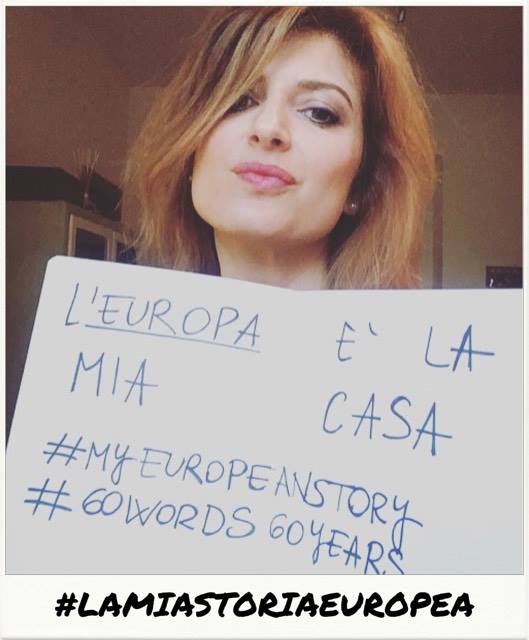 L'EUROPA È LA
MIA CASA
#MYEUROPEANSTORY
#60WORDS60YEARS
#LAMIASTORIAEUROPEA